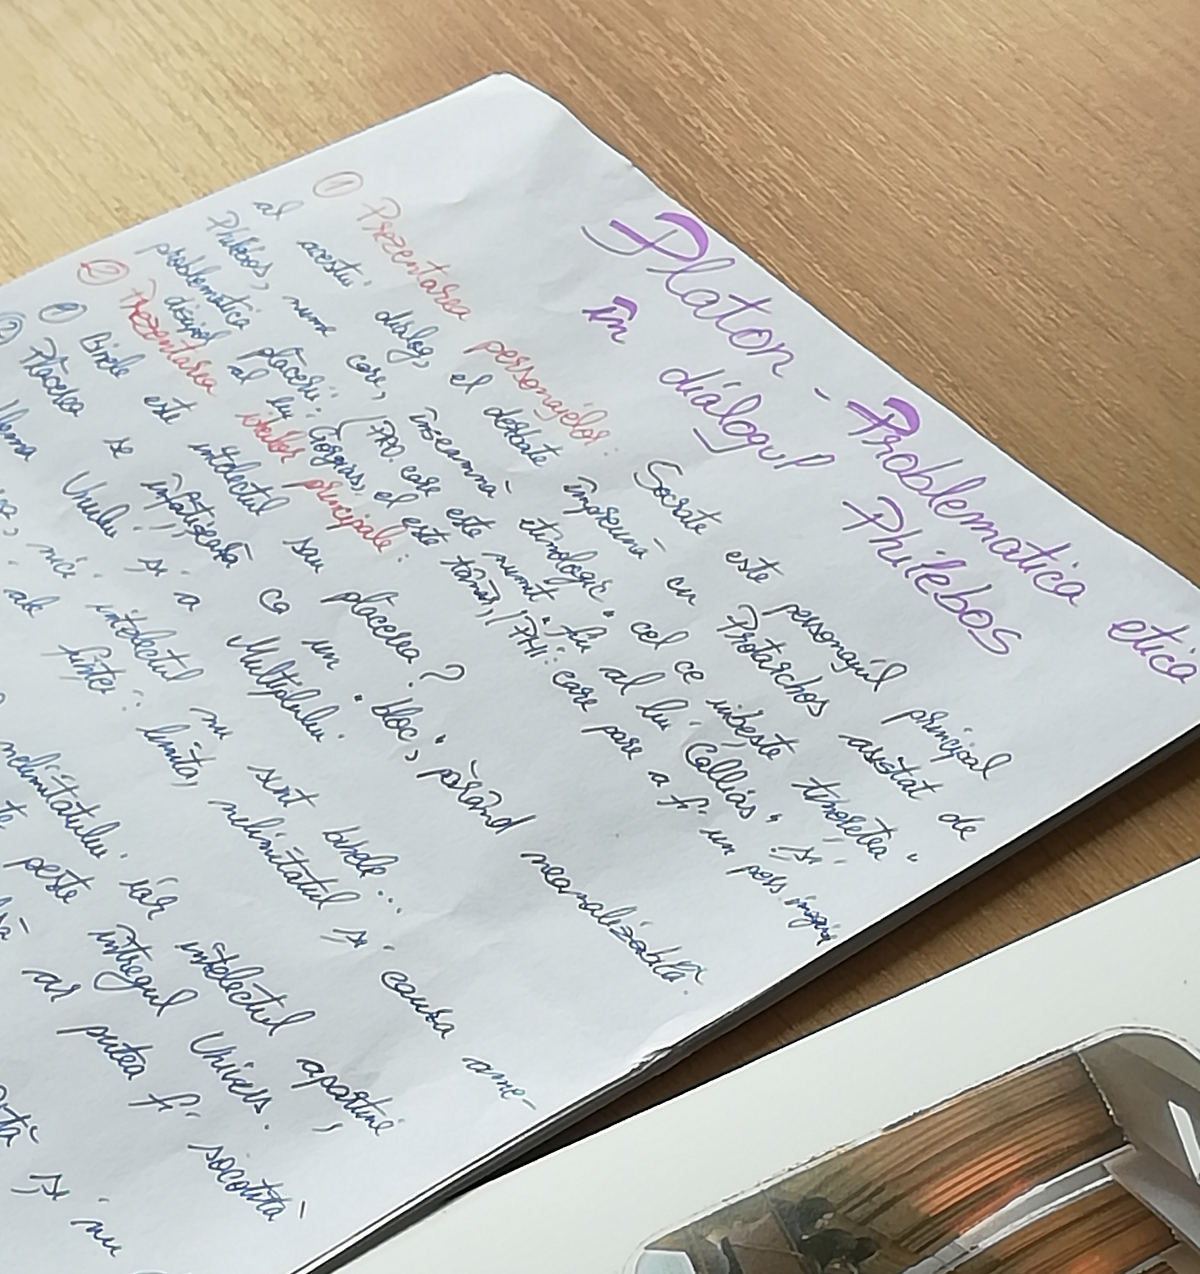 Platon - Problematica etica
în dialogul Philebos
① Prezentarea personajelor: Socrate este personajul principal
al acestui dialog, el dezbate împreună cu Protarchos asistat de
Philebos, nume care, înseamnă etimologic "cel ce iubește tinerețea"
problematica plăcerii: (PRO. care este numit "fiu al lui Callias" și
discipol al lui Gorgias, el este tânăr, / PHI: care pare a fi un pers.
② Prezentarea ideilor principale:
① Binele este intelectul sau plăcerea?
② Plăcerea se înfățișează ca un "bloc", părând neanalizabilă.
Unului și a Multiplului.
nici intelectul nu sunt binele...
ale ființei: limita, nelimitatul și cauza ame-
nelimitatului. iar intelectul aparține
peste întregul Univers.
ar putea fi socotită
și nu